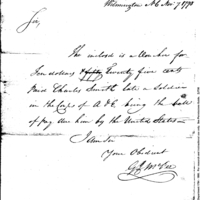 Wilmington N C Nov 7 1798
Sir,
The inclosed is a Voucher for
Ten dollars & fifty Twenty five cents
Paid Charles Smith late a soldier
in the Corps of A & E being the
of pay due him by the United States
I am Sir
Your Obedient